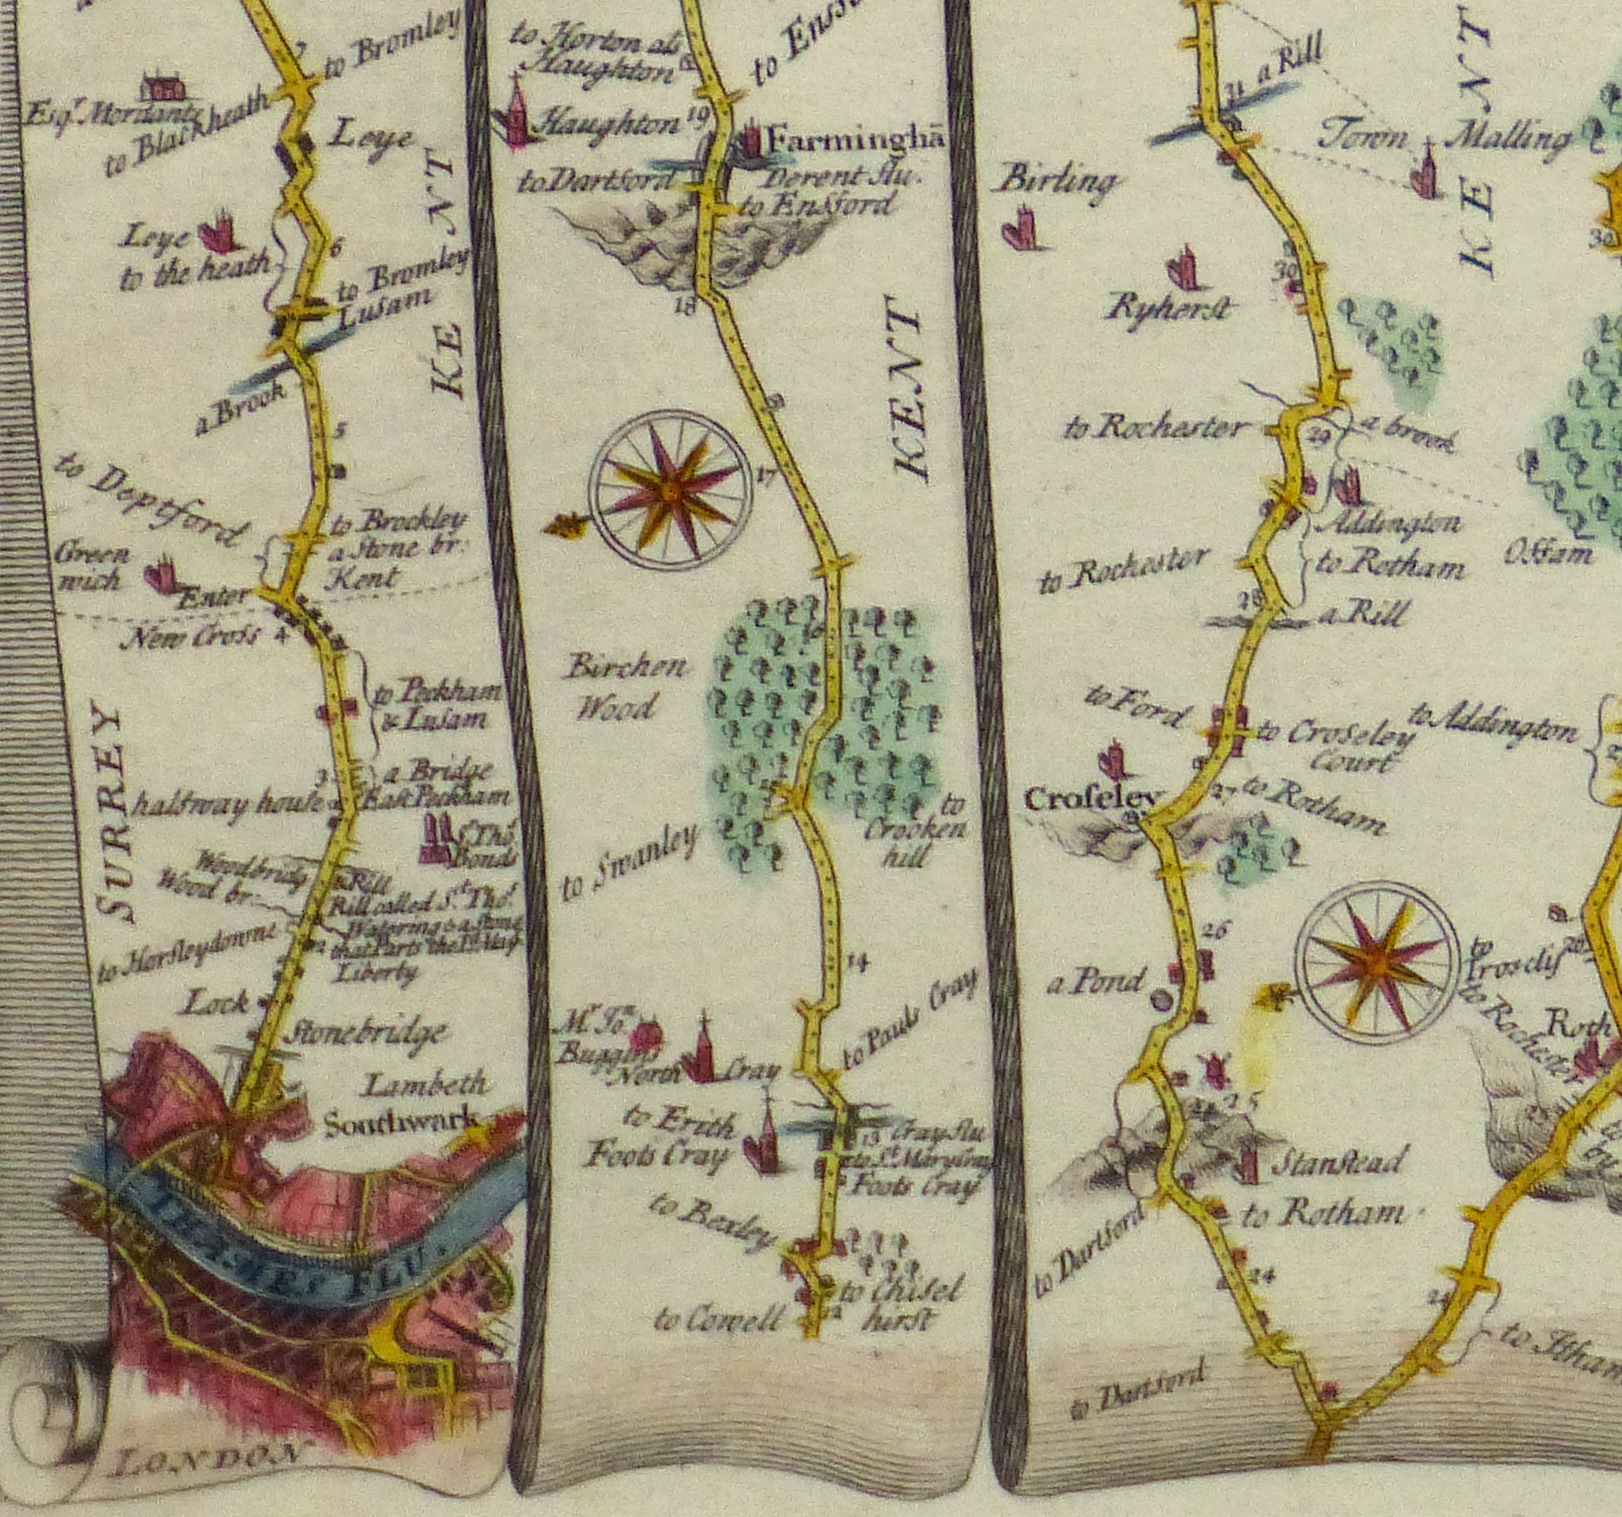 7
to Bromley
Esqr. Mordants
to Blackheath
Leye
KENT
Leye
to the heath
6
to Bromley
Lusam
a Brook
5
to Deptford
to Brockley
a Stone br:
Kent
Green
wich
Enter
New Cross
4
to Peckham
& Lusam
3
a Bridge
halfway house
East Peckham
SURREY
Sr. Tho.
Bonds
Woodbridg
Wood br.
a Rill
Rill called St. Thos.
Watering & a Stone
that Parts the Ld. May
Liberty
to Horsleydowne
2
Lock
Stonebridge
Lambeth
Southwark
THAMES FLU.
LONDON
to Horton als
Haughton
Haughton
19
Farminghā
to Dartford
Derent flu.
to Ensford
18
KENT
17
Birchen
Wood
16
15
to Swanley
to
Crocken
hill
14
to Pauls Cray
Mr. Jon.
Buggins
North Cray
to Erith
Foots Cray
13
Cray flu
to St. Mary Cray
Foots Cray
to Bexley
to Chisel
hirst
to Cowell
12
31
a Rill
KENT
Town Malling
Birling
30
Ryherst
to Rochester
29
a brook
Addington
to Rotham
to Rochester
Offam
28
a Rill
to Ford
to Croseley
Court
to Addington
Croseley
27
to Rotham
26
a Pond
to
Trosclif
to Rochester
Roth
25
Stanstead
to Rotham
to Dartford
24
to Dartford